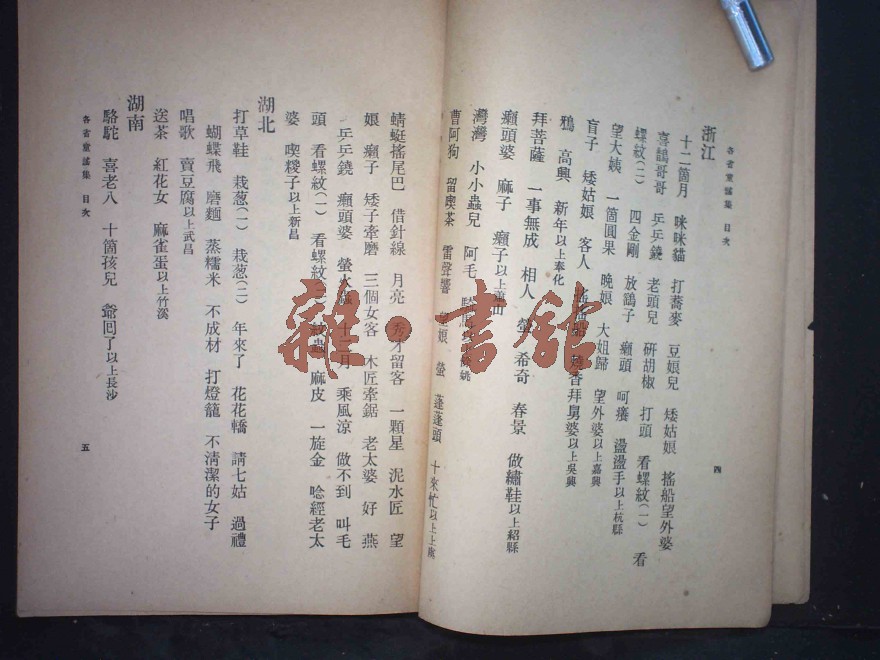 各省童謠集 目次
浙江
十二箇月 咪咪貓 打蕎麥 豆娘兒 矮姑娘 搖船望外婆
喜鵲哥哥 乒乒鐃 老頭兒 研胡椒 打頭 看螺紋(一) 看
螺紋(二) 四金剛 放鷂子 癩頭 呵癢 盪盪手以上杭縣
望大姨 一箇圓果 晚娘 大姐歸 望外婆以上嘉興
盲子 矮姑娘 客人 船 燒香拜舅婆以上吳興
鴉 高興 新年以上奉化
拜菩薩 一事無成 相人 螢 希奇 春景 做繡鞋以上紹縣
癩頭婆 麻子 癩子以上蕭山
灣灣 小小蟲兒 阿毛 姚
曹阿狗 留喫茶 雷聲響 娘 螢 蓬蓬頭 十來忙以上上虞
四
蜻蜓搖尾巴 借針線 月亮 秀才留客 一顆星 泥水匠 望
娘 癩子 矮子牽磨 三個女客 木匠牽鋸 老太婆 好 燕
乒乒鐃 癩頭婆 螢火蟲 十二月 乘風涼 做不到 叫毛
頭 看螺紋(一) 看螺紋(二) 蟲 麻皮 一旋金 唸經老太
婆 喫糉子以上新昌
湖北
打草鞋 栽葱(一) 栽葱(二) 年來了 花花轎 請七姑 過禮
蝴蝶飛 磨麵 蒸糯米 不成材 打燈籠 不清潔的女子
唱歌 賣豆腐以上武昌
送茶 紅花女 麻雀蛋以上竹溪
湖南
駱駝 喜老八 十箇孩兒 爺回了以上長沙
各省童謠集 目次
五
雜·書館